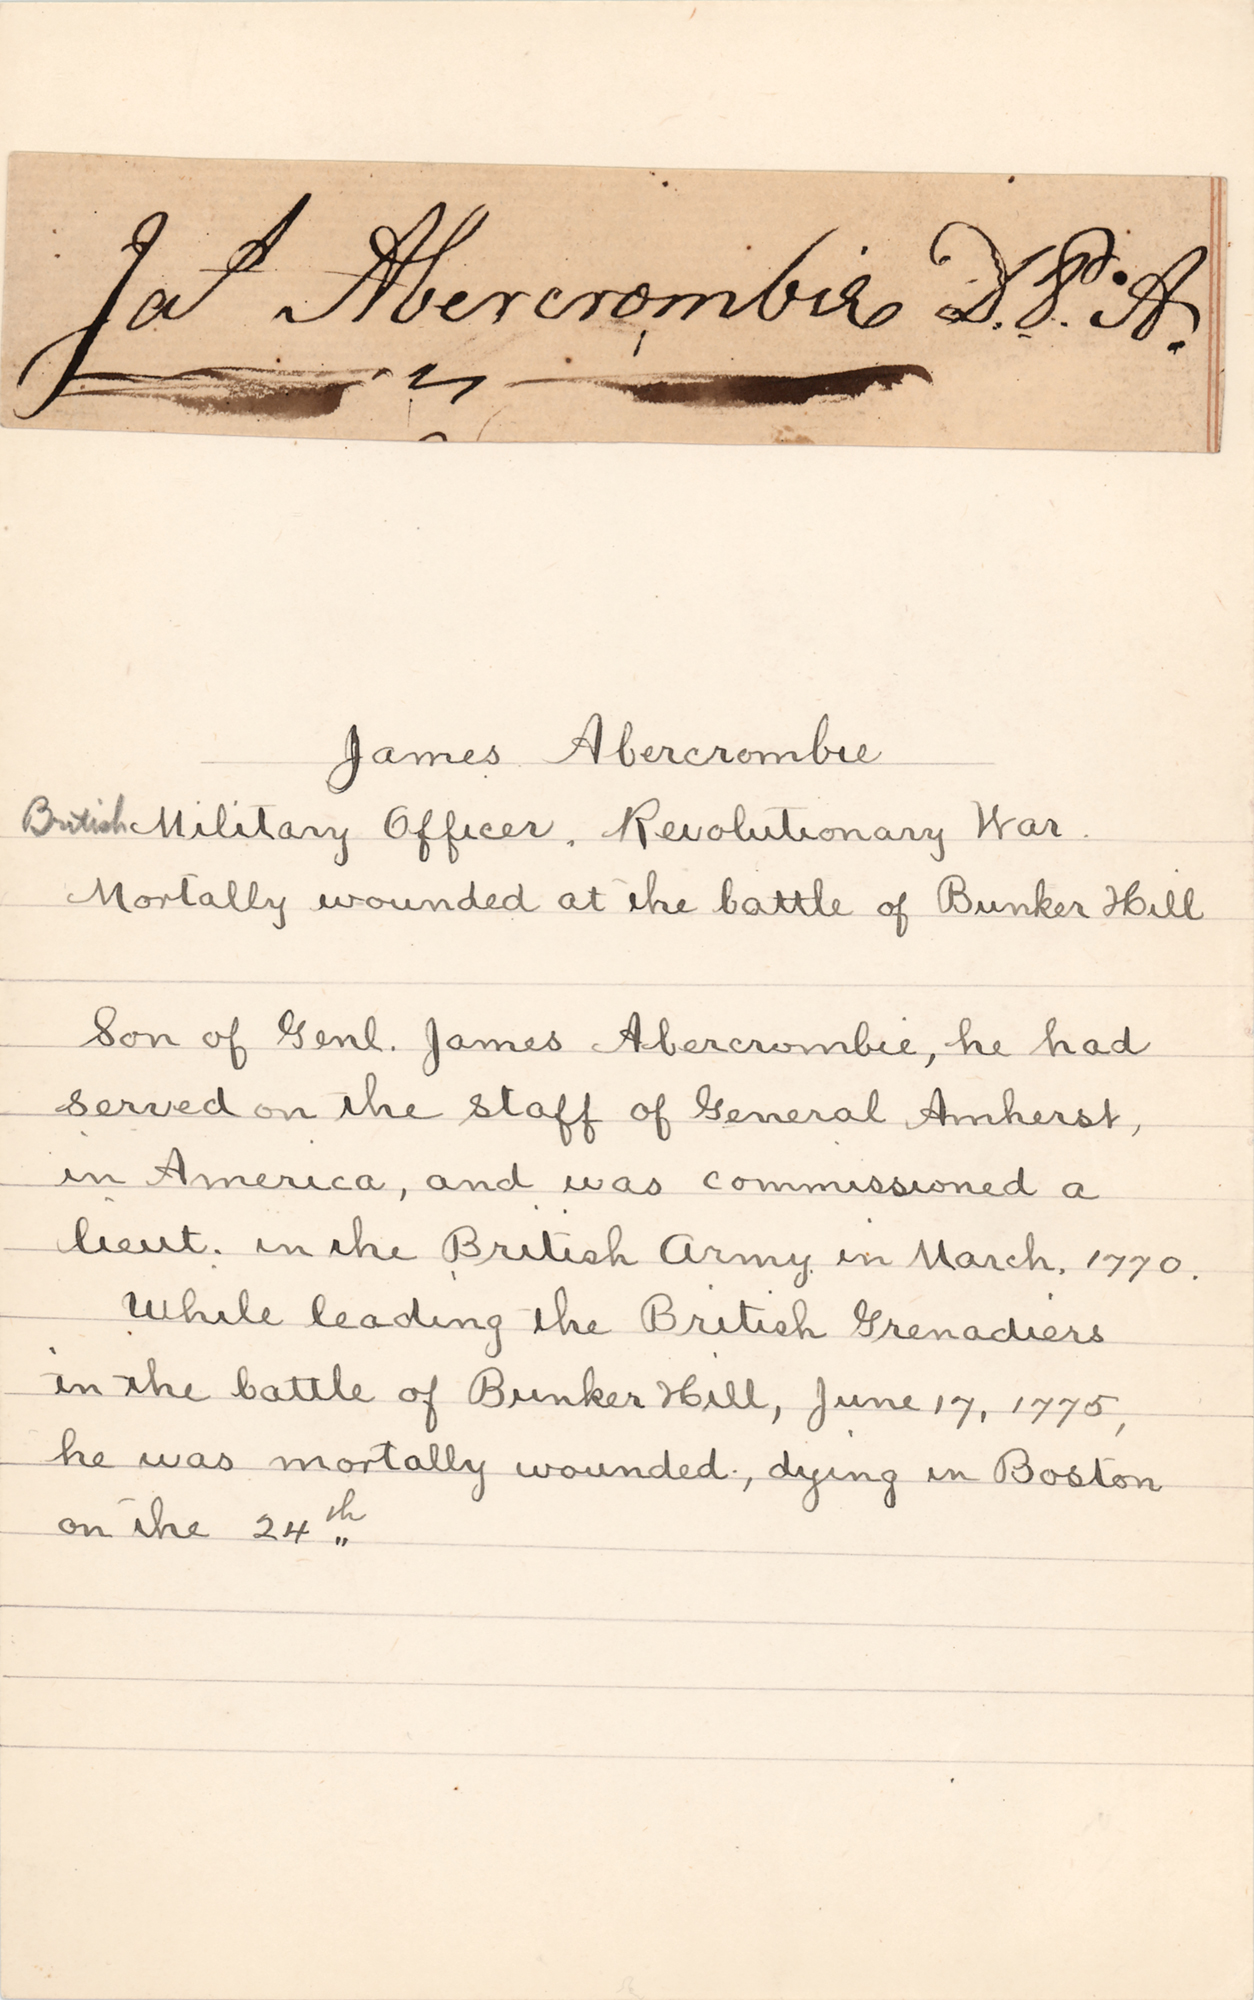 Jaˢ Abercrombie D.P.A.
James Abercrombie
British Military Officer, Revolutionary War.
Mortally wounded at the battle of Bunker Hill
Son of Genl. James Abercrombie, he had
served on the staff of General Amherst,
in America, and was commissioned a
lieut. in the British Army in March, 1770.
While leading the British Grenadiers
in the battle of Bunker Hill, June 17, 1775,
he was mortally wounded, dying in Boston
on the 24th